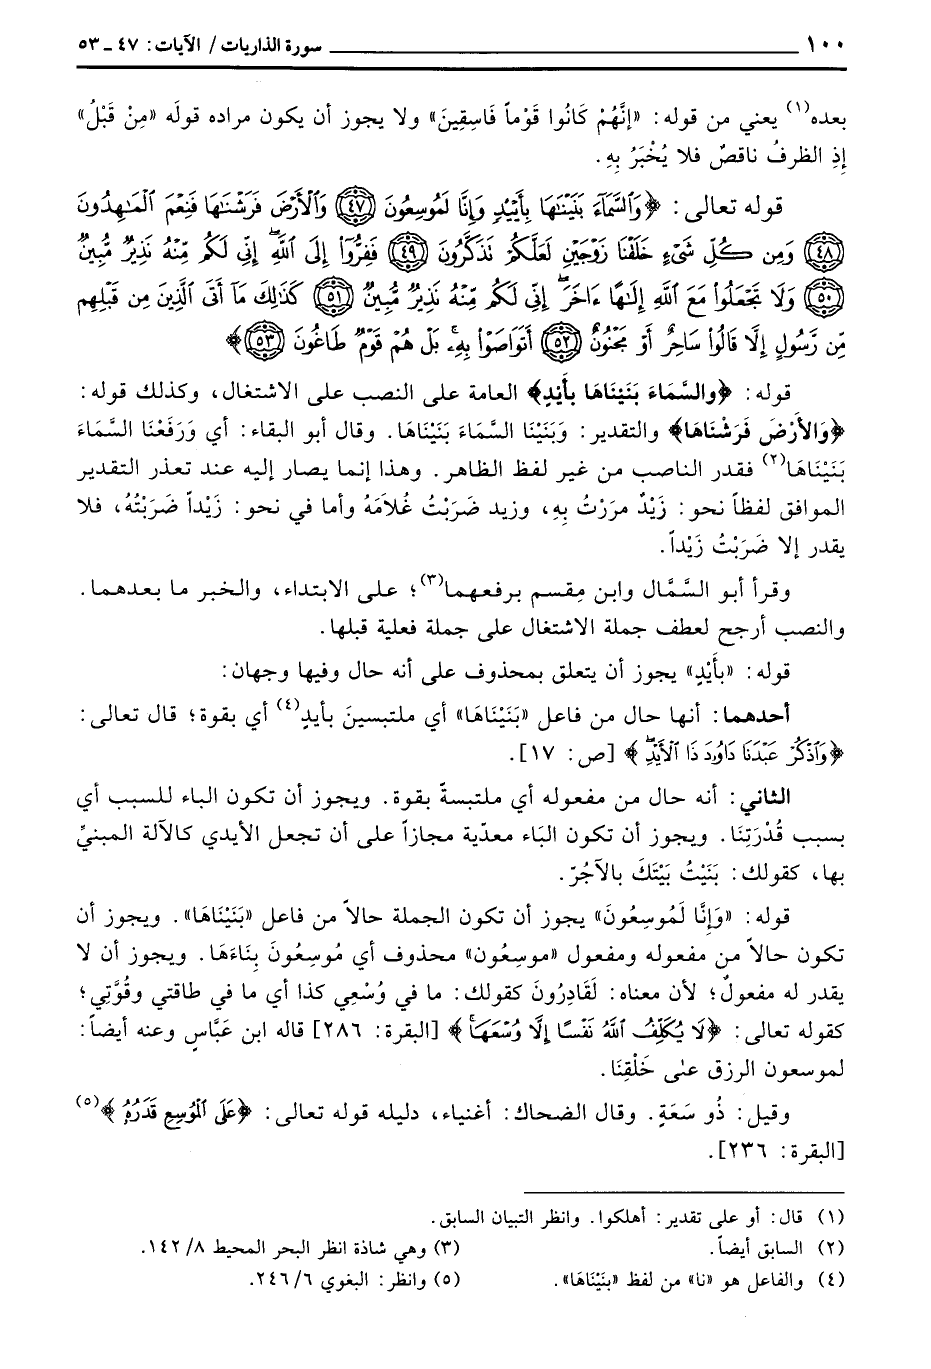 ١٠٠ سورة الذاريات / الآيات: ٤٧ ـ ٥٣
بعده(١) يعني من قوله: «إنَّهُمْ كَانُوا قَوْماً فَاسِقِينَ» ولا يجوز أن يكون مراده قولَه «مِنْ قَبْلُ»
إذِ الظرفُ ناقصٌ فلا يُخْبَرُ بِهِ.
قوله تعالى: ﴿وَٱلسَّمَآءَ بَنَيۡنَٰهَا بِأَيۡيْدٖ وَإِنَّا لَمُوسِعُونَ ﴿٤٧﴾ وَٱلۡأَرۡضَ فَرَشۡنَٰهَا فَنِعۡمَ ٱلۡمَٰهِدُونَ
﴿٤٨﴾ وَمِن كُلِّ شَيۡءٍ خَلَقۡنَا زَوۡجَيۡنِ لَعَلَّكُمۡ تَذَكَّرُونَ ﴿٤٩﴾ فَفِرُّوٓاْ إِلَى ٱللَّهِۖ إِنِّي لَكُم مِّنۡهُ نَذِيرٞ مُّبِينٞ
﴿٥٠﴾ وَلَا تَجۡعَلُواْ مَعَ ٱللَّهِ إِلَٰهًا ءَاخَرَۖ إِنِّي لَكُم مِّنۡهُ نَذِيرٞ مُّبِينٞ ﴿٥١﴾ كَذَٰلِكَ مَآ أَتَى ٱلَّذِينَ مِن قَبۡلِهِم
مِّن رَّسُولٍ إِلَّا قَالُواْ سَاحِرٌ أَوۡ مَجۡنُونٌ ﴿٥٢﴾ أَتَوَاصَوۡاْ بِهِۦۚ بَلۡ هُمۡ قَوۡمٞ طَاغُونَ ﴿٥٣﴾﴾
قوله: ﴿والسَّمَاءَ بَنَيْنَاهَا بِأَيْدٍ﴾ العامة على النصب على الاشتغال، وكذلك قوله:
﴿وَالأَرْضَ فَرَشْنَاهَا﴾ والتقدير: وَبَنَيْنَا السَّمَاءَ بَنَيْنَاهَا. وقال أبو البقاء: أي وَرَفَعْنَا السَّمَاءَ
بَنَيْنَاهَا(٢) فقدر الناصب من غير لفظ الظاهر. وهذا إنما يصار إليه عند تعذر التقدير
الموافق لفظاً نحو: زَيْدٌ مررْتُ بِهِ، وزيد ضَرَبْتُ غُلاَمَهُ وأما في نحو: زَيْداً ضَرَبْتُهُ، فلا
يقدر إلا ضَرَبْتُ زَيْداً.
وقرأ أبو السَّمَّال وابن مِقسم برفعهما(٣)؛ على الابتداء، والخبر ما بعدهما.
والنصب أرجح لعطف جملة الاشتغال على جملة فعلية قبلها.
قوله: «بأَيْدٍ» يجوز أن يتعلق بمحذوف على أنه حال وفيها وجهان:
أحدهما: أنها حال من فاعل «بَنَيْنَاهَا» أي ملتبسينَ بأيدٍ(٤) أي بقوة؛ قال تعالى:
﴿وَٱذۡكُرۡ عَبۡدَنَا دَاوُۥدَ ذَا ٱلۡأَيۡدِۖ﴾ [ص: ١٧].
الثاني: أنه حال من مفعوله أي ملتبسةً بقوة. ويجوز أن تكون الباء للسبب أي
بسبب قُدْرَتِنَا. ويجوز أن تكون البَاء معدّية مجازاً على أن تجعل الأيدي كالآلة المبنيِّ
بها، كقولك: بَنَيْتُ بَيْتَكَ بالآجُرّ.
قوله: «وَإِنَّا لَمُوسِعُونَ» يجوز أن تكون الجملة حالاً من فاعل «بَنَيْنَاهَا». ويجوز أن
تكون حالاً من مفعوله ومفعول «موسِعُون» محذوف أي مُوسِعُونَ بِنَاءَهَا. ويجوز أن لا
يقدر له مفعولٌ؛ لأن معناه: لَقَادِرُونَ كقولك: ما في وُسْعِي كذا أي ما في طاقتي وقُوَّتِي؛
كقوله تعالى: ﴿لَا يُكَلِّفُ ٱللَّهُ نَفۡسًا إِلَّا وُسۡعَهَاۚ﴾ [البقرة: ٢٨٦] قاله ابن عَبَّاسٍ وعنه أيضاً:
لموسعون الرزق على خَلْقِنَا.
وقيل: ذُو سَعَةٍ. وقال الضحاك: أغنياء، دليله قوله تعالى: ﴿عَلَى ٱلۡمُوسِعِ قَدَرُهُۥ﴾(٥)
[البقرة: ٢٣٦].
(١) قال: أو على تقدير: أهلكوا. وانظر التبيان السابق.
(٢) السابق أيضاً. (٣) وهي شاذة انظر البحر المحيط ٨/ ١٤٢.
(٤) والفاعل هو «نا» من لفظ «بنَيْنَاهَا». (٥) وانظر: البغوي ٦/ ٢٤٦.